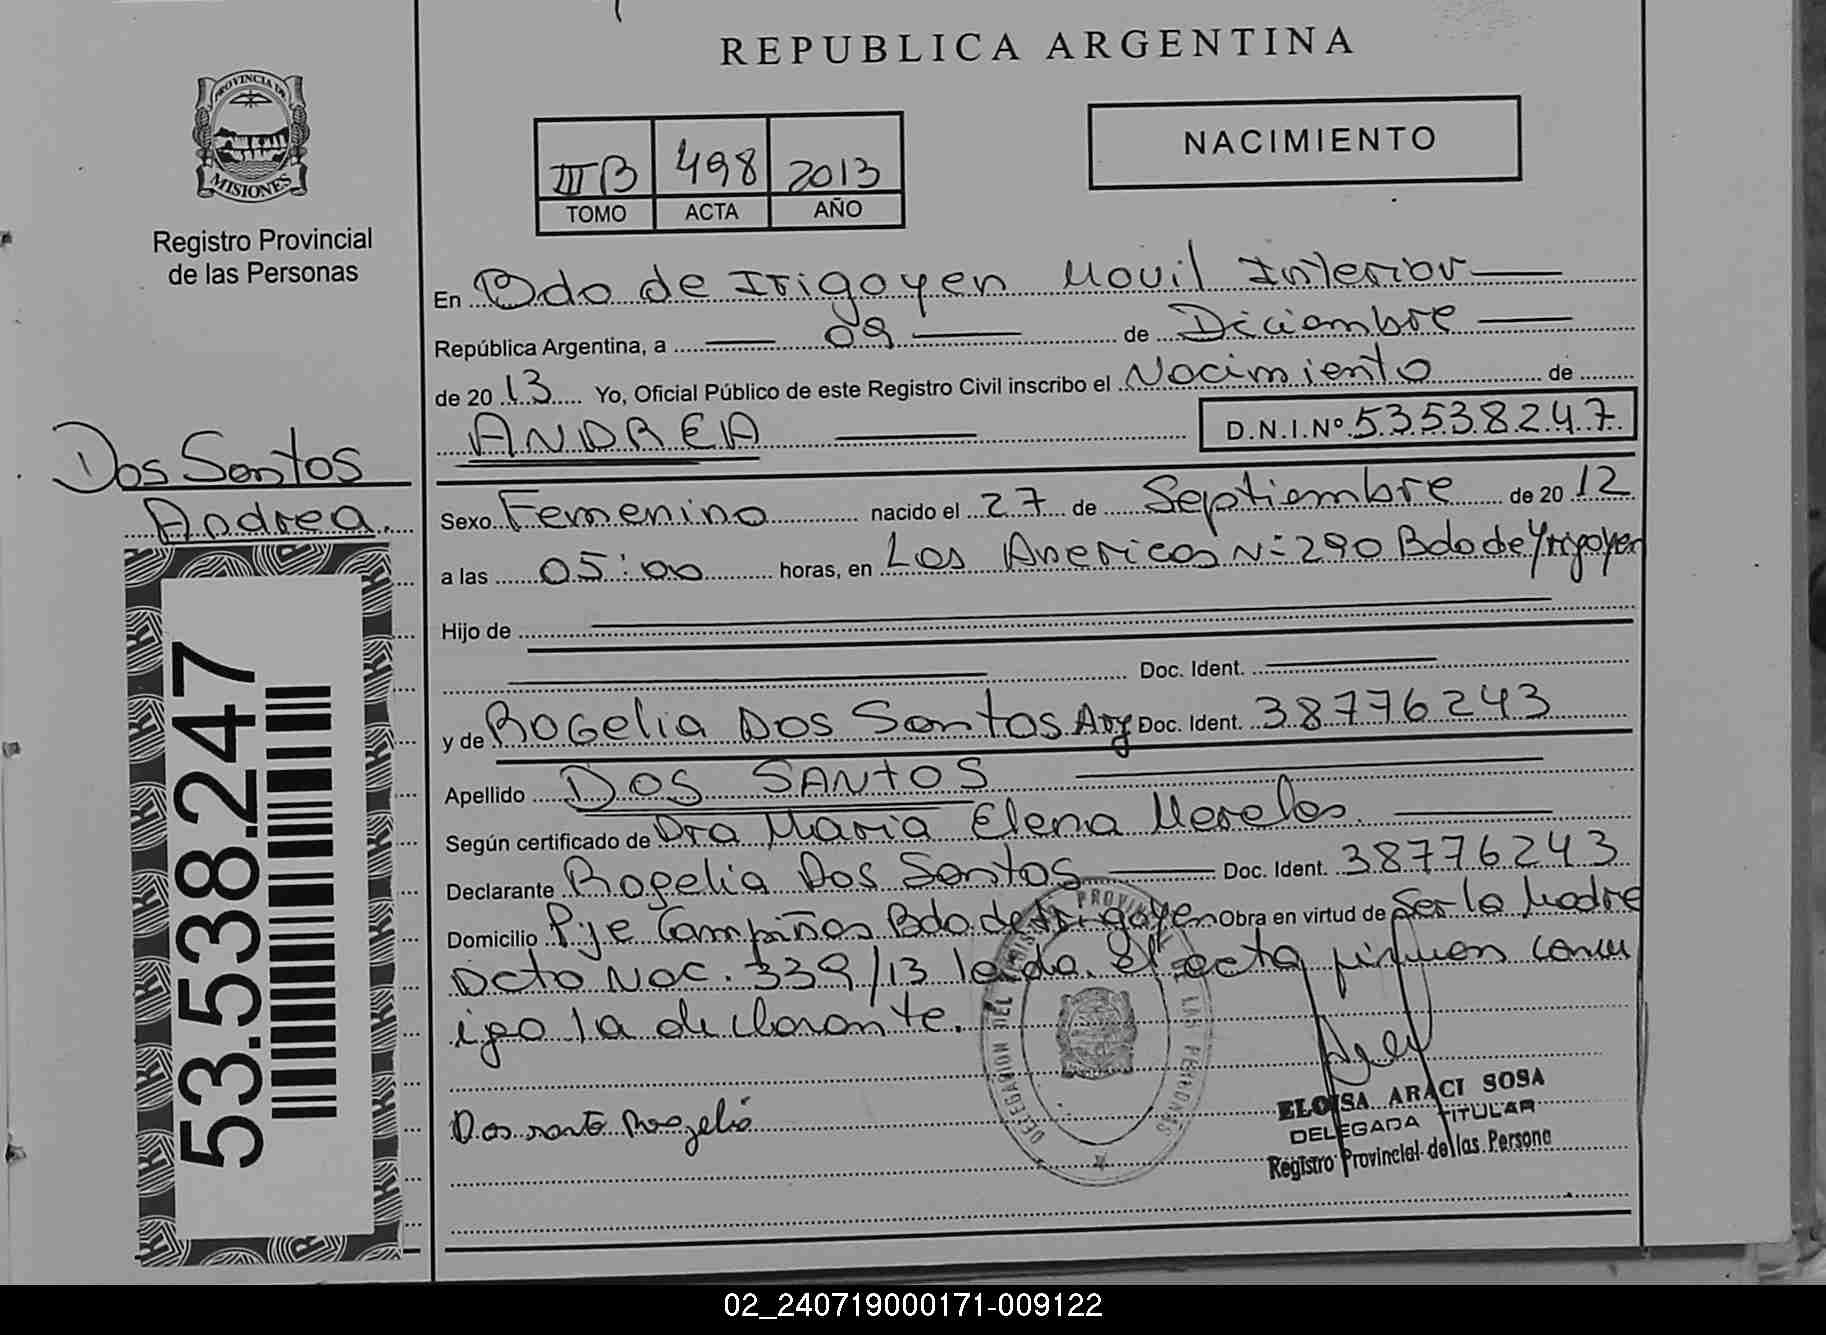 REPUBLICA ARGENTINA
PROVINCIA DE
MISIONES
Registro Provincial
de las Personas
IIIB 498 2013
TOMO ACTA AÑO
NACIMIENTO
En Bdo de Irigoyen Movil Interior
República Argentina, a 09 de Diciembre
de 2013 Yo, Oficial Público de este Registro Civil inscribo el Nacimiento de
ANDREA D.N.I.Nº 53538247
Dos Santos
Andrea.
Sexo Femenino nacido el 27 de Septiembre de 2012
a las 05:00 horas, en Los Americas Nº 290 Bdo de Yrigoyen
Hijo de
Doc. Ident.
y de ROGelia Dos Santos Arg Doc. Ident. 38776243
Apellido DOS SANTOS
Según certificado de Dra Maria Elena Morelos
Declarante Rogelia Dos Santos Doc. Ident. 38776243
Domicilio Pje Campiñas Bdo de Irigoyen Obra en virtud de Ser la Madre
Dcto Nac. 339/13 leida el acta firman conm
igo la declarante.
Dos santo Rogelia
DELEGACION DEL REGISTRO PROVINCIAL LAS PERSONAS
ELOISA ARACI SOSA
DELEGADA TITULAR
Registro Provincial de las Persona
53.538.247
02_240719000171-009122